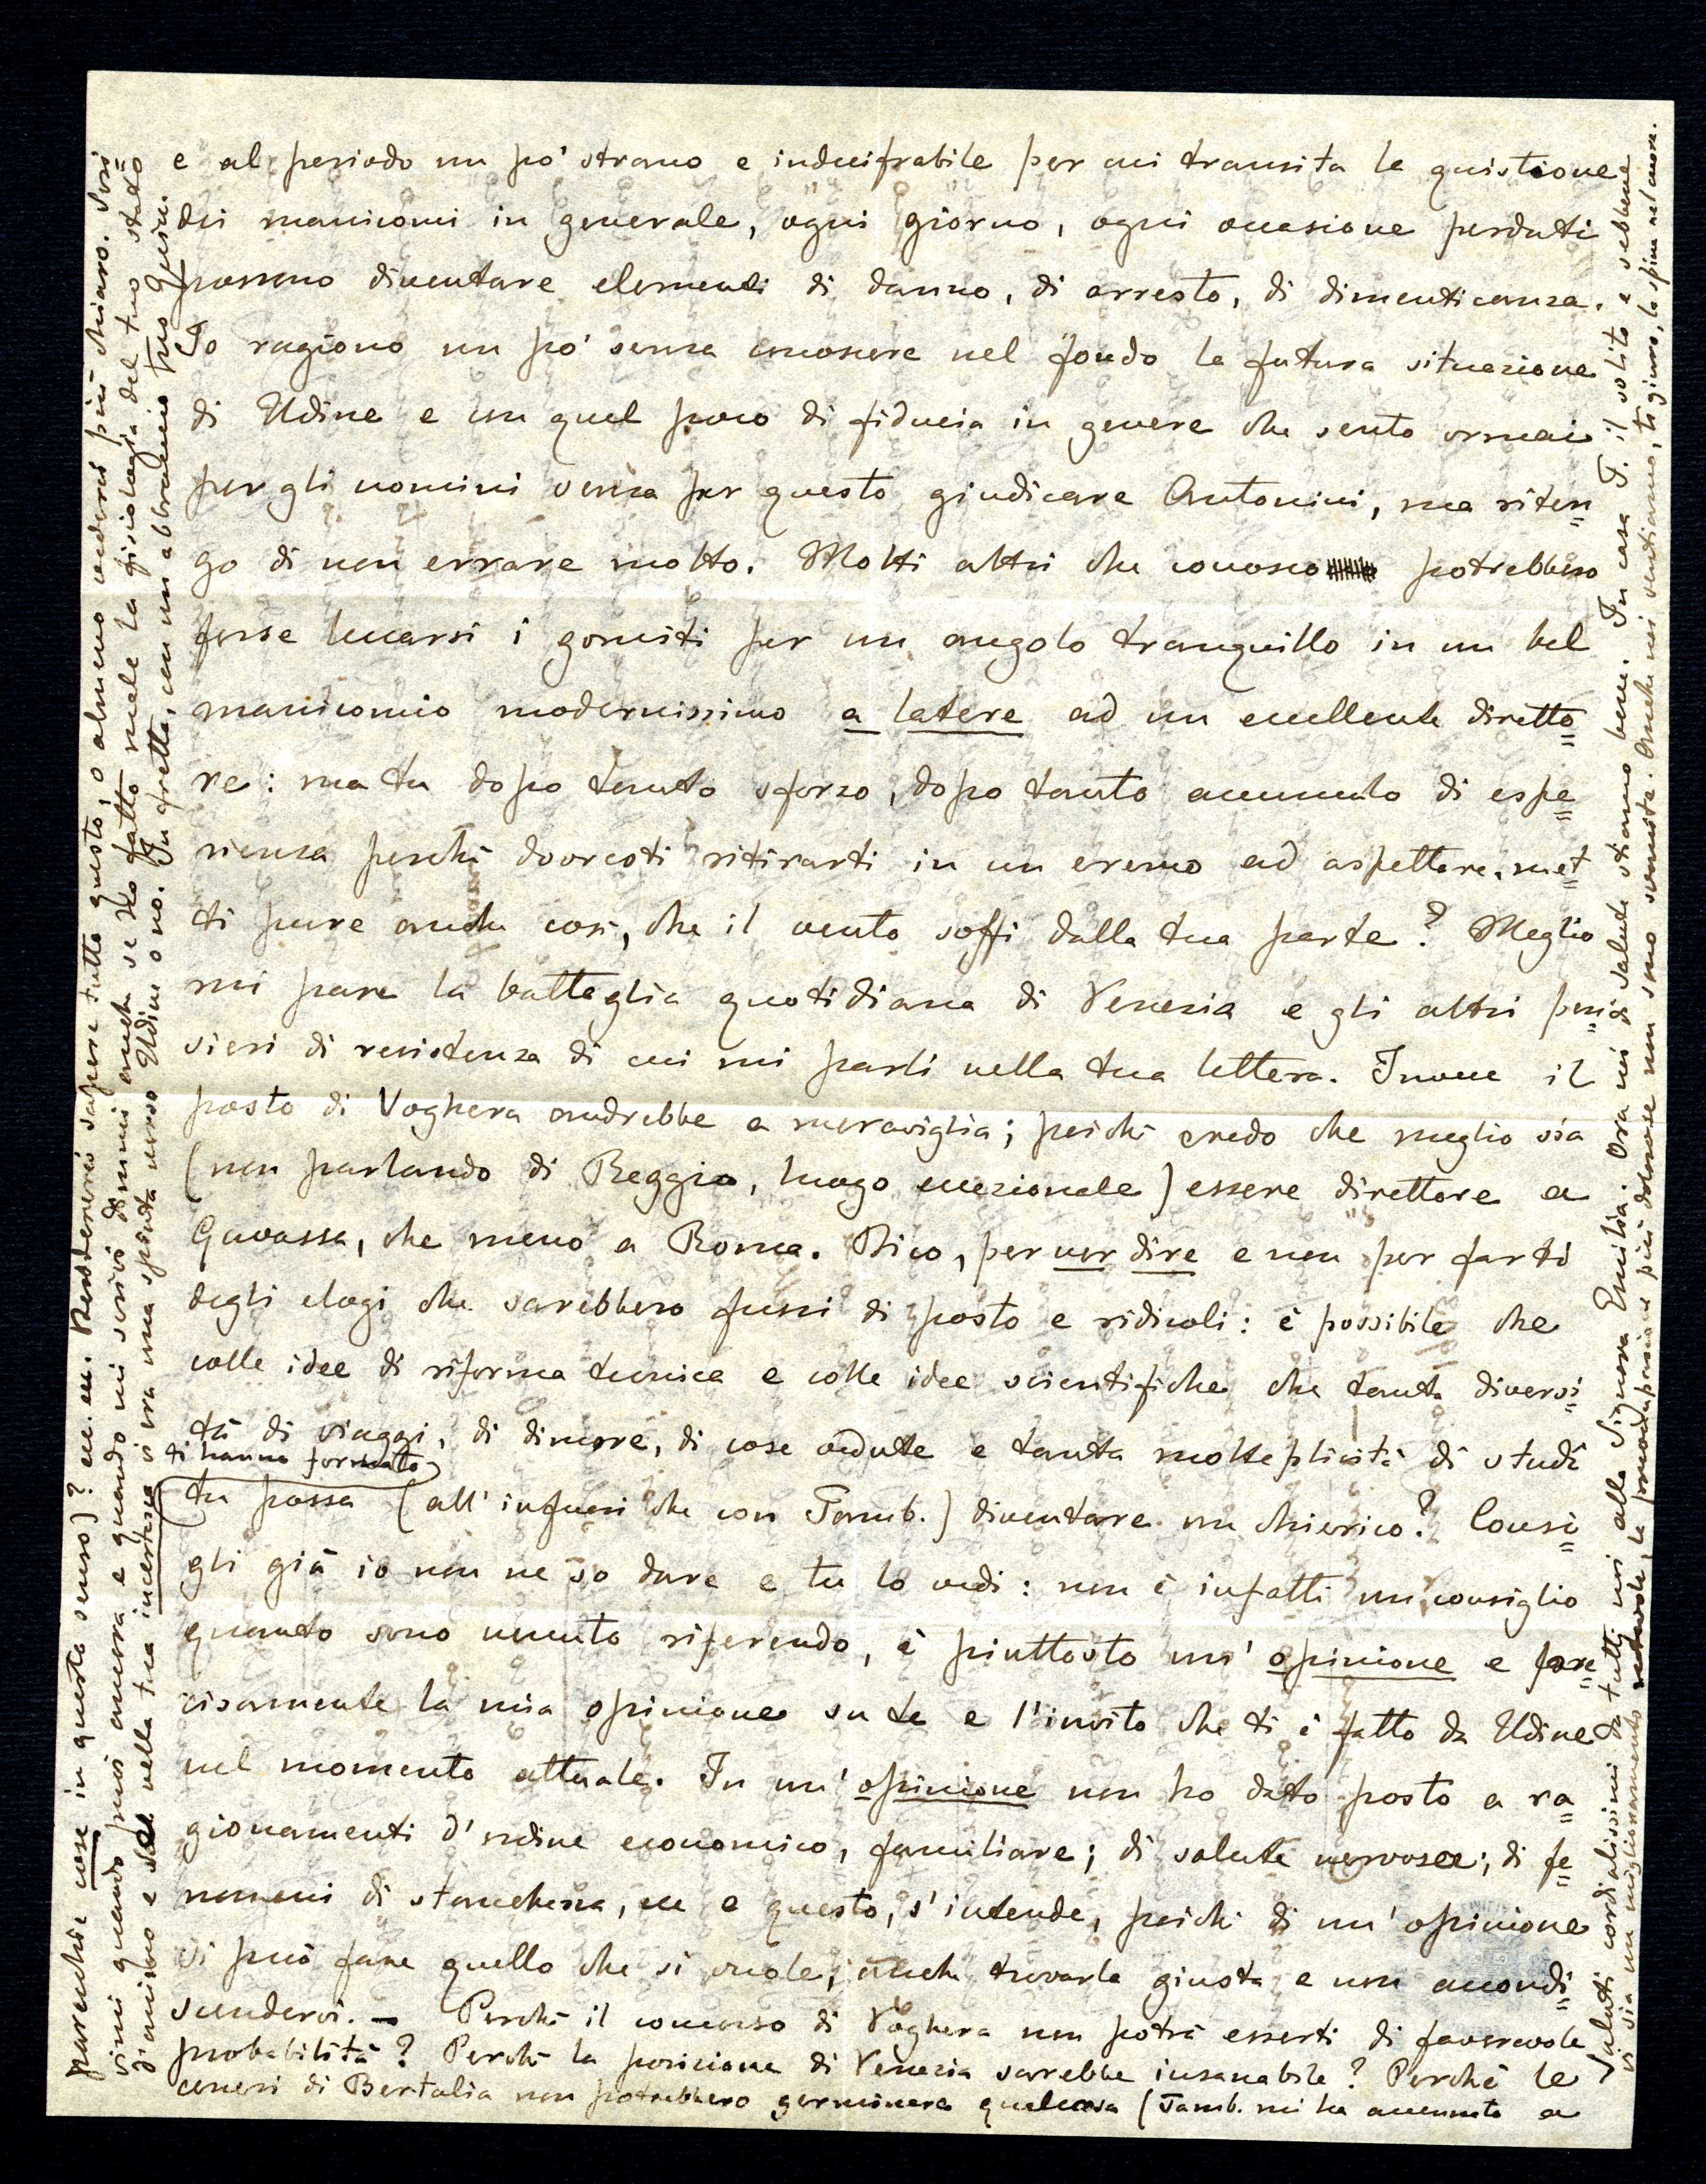 e al periodo un pò strano e indecifrabile per cui transita la quistione
dei manicomi in generale, ogni giorno, ogni occasione perduti
possono diventare elementi di danno, di arresto, di dimenticanza.
Io ragiono un pò senza conoscere nel fondo la futura situazione
di Udine e con quel poco di fiducia in genere che sento ormai
per gli uomini senza per questo giudicare Antonini, ma riten=
go di non errare molto. Molti altri che conosco potrebbero
forse leccarsi i gomiti per un angolo tranquillo in un bel
manicomio modernissimo a latere ad un eccellente diretto=
re: ma tu dopo tanto sforzo, dopo tanto accumulo di espe=
rienza perchè dovresti ritirarti in un eremo ad aspettare, met=
ti pure anche così, che il vento soffi dalla tua parte? Meglio
mi pare la battaglia quotidiana di Venezia e gli altri pen=
sieri di resistenza di cui mi parli nella tua lettera. Invece il
posto di Voghera andrebbe a meraviglia; poichè credo che meglio sia
(non parlando di Reggio, luogo eccezionale) essere direttore a
Gavassa, che meno a Roma. Dico, per ver dire e non per farti
degli elogi che sarebbero fuori di posto e ridicoli: è possibile che
colle idee di riforma tecnica e colle idee scientifiche che tanta diversi=
tà di viaggi, di dimore, di cose vedute e tanta molteplicità di studi
ti hanno formato
tu possa (all'infuori che con Tamb.) diventare un chierico? Consi=
gli già io non ne so dare e tu lo vedi: non è infatti un consiglio
quanto sono venuto riferendo, è piuttosto un'opinione e pre=
cisamente la mia opinione su te e l'invito che ti è fatto da Udine
nel momento attuale. In un'opinione non ho dato posto a ra=
gionamenti d'ordine economico, familiare; di salute nervosa; di fe=
nomeni di stanchezza, ecc e questo, s'intende, poichè di un'opinione
si può fare quello che si vuole; anche trovarla giusta e non accondi=
scendervi. – Perchè il concorso di Voghera non potrà esserti di favorevole
probabilità? Perchè la posizione di Venezia sarebbe insanabile? Perchè le
ceneri di Bertalia non potrebbero germinare qualcosa (Tamb. mi ha accennato a
parecchie cose in questo senso)? ecc. ecc. Desidererei sapere tutto questo, o almeno vederci più chiaro. Scri=
vimi quando puoi ancora e quando mi scrivi dimmi anche se ho fatto male la fisiologia del tuo stato
d'animo e se nella tua incertezza vi era una spinta verso Udine o no. In fretta, con un abbraccio tuo
Saluti cordialissimi da tutti noi alla Signora Emilia. Ora noi di salute stiamo bene. In casa T. il solito e sebbene
vi sia un miglioramento notevole, le preoccupazioni più dolorose non sono svanite. Anche noi sentiamo, ti giuro, le spine nel cuore.